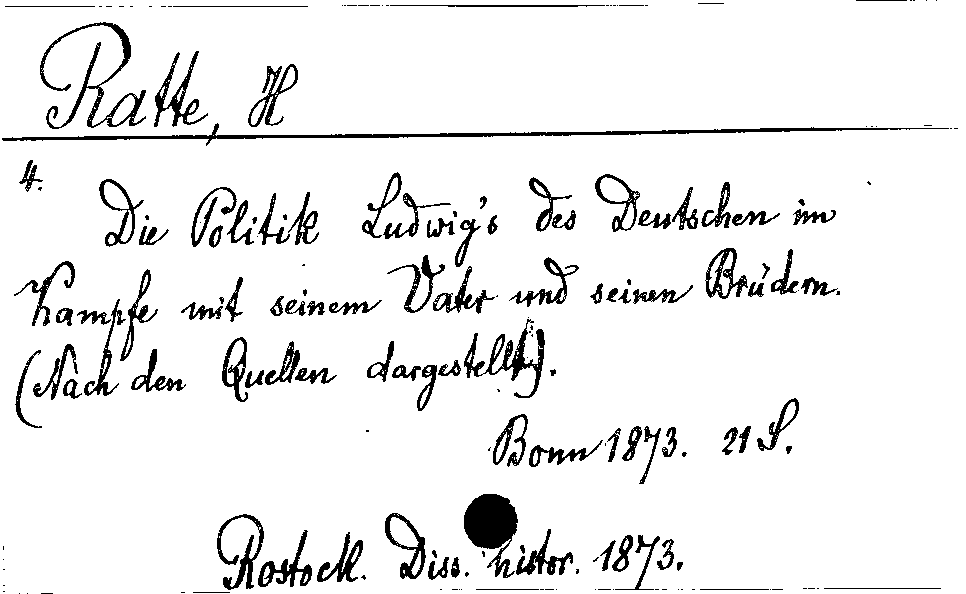 Ratte, H
4.
Die Politik Ludwig's des Deutschen im
Kampfe mit seinem Vater und seinen Brüdern.
(Nach den Quellen dargestellt).
Bonn 1873. 21 S.
Rostock. Diss. histor. 1873.